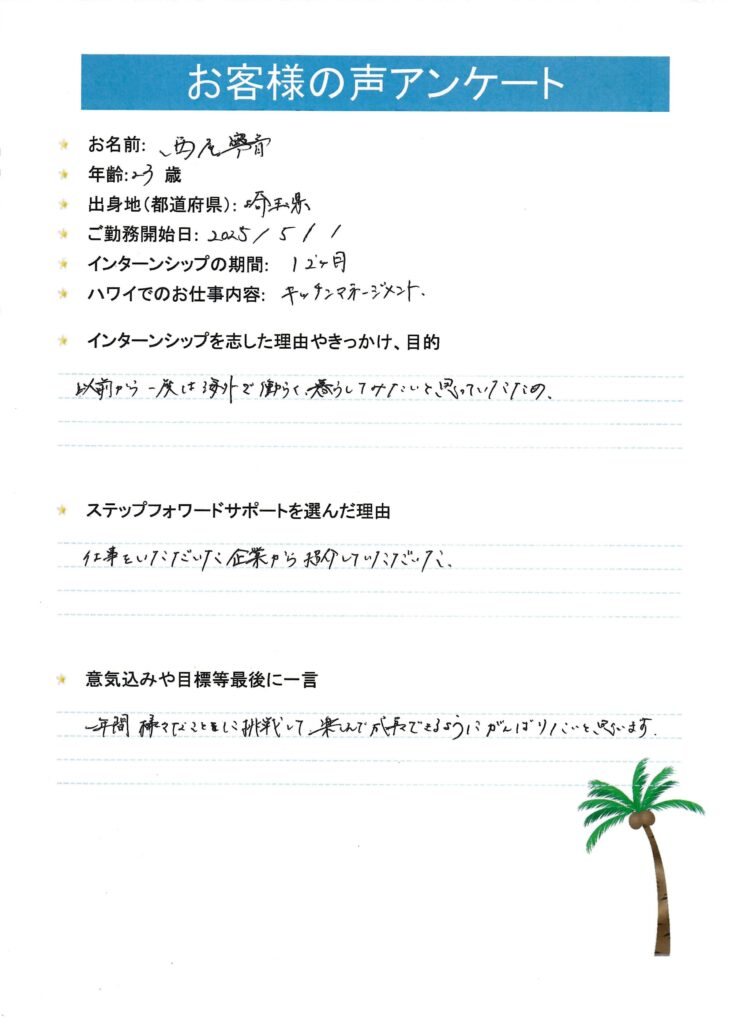 お客様の声アンケート
お名前: 西尾寧音
年齢:23 歳
出身地(都道府県): 埼玉県
ご勤務開始日: 2025/5/1
インターンシップの期間: 12ヶ月
ハワイでのお仕事内容: キッチンマネージメント.
インターンシップを志した理由やきっかけ、目的
以前から一度は海外で働らく、暮らしてみたいと思っていたため、
ステップフォワードサポートを選んだ理由
仕事をいただいた企業から紹介していただいた、
意気込みや目標等最後に一言
一年間 様々なことに挑戦して、楽しんで成長できるようにがんばりたいと思います.